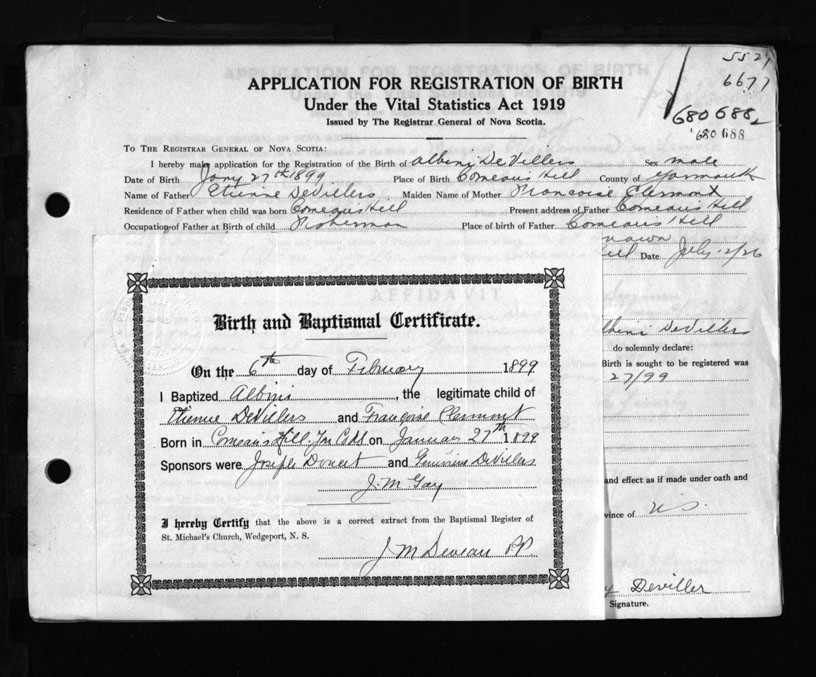 5521
6677
680688
680 688
APPLICATION FOR REGISTRATION OF BIRTH
Under the Vital Statistics Act 1919
Issued by The Registrar General of Nova Scotia.
TO THE REGISTRAR GENERAL OF NOVA SCOTIA:
I hereby make application for the Registration of the Birth of Albini DeVillers Sex male
Date of Birth Jany 27th 1899 Place of Birth Comeau's Hill County of Yarmouth
Name of Father Etienne DeVillers Maiden Name of Mother Francoise Clermont
Residence of Father when child was born Comeau's Hill Present address of Father Comeau's Hill
Occupation of Father at Birth of child Fisherman Place of birth of Father Comeau's Hill
Date July 12/26
AFFIDAVIT
Albini DeVillers
do solemnly declare:
Birth is sought to be registered was
27/99
and effect as if made under oath and
vince of N.S.
Deviller
Signature.
Birth and Baptismal Certificate.
On the 6th day of February 1899
I Baptized Albini, the legitimate child of
Etienne DeVillers and Françoise Clermont
Born in Comeau's Hill on January 27th 1899
Sponsors were Joseph Doucet and DeVillers
J. M. Gay
I hereby Certify that the above is a correct extract from the Baptismal Register of
St. Michael's Church, Wedgeport, N. S.
J M Deveau PP